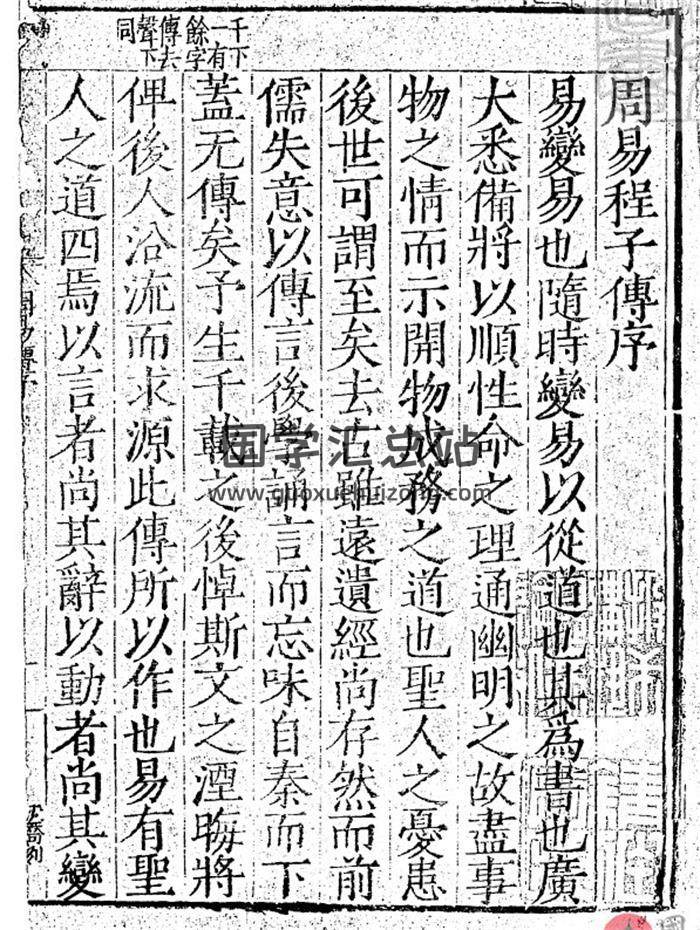 周易程子傳序
易變易也隨時變易以從道也其爲書也廣
大悉備將以順性命之理通幽明之故盡事
物之情而示開物成務之道也聖人之憂患
後世可謂至矣去古雖遠遺經尚存然而前
儒失意以傳言後學誦言而忘味自秦而下
蓋无傳矣予生千載之後悼斯文之湮晦將
俾後人沿流而求源此傳所以作也易有聖
人之道四焉以言者尚其辭以動者尚其變
千下
一有
餘字
傳去
聲下
同
周易傳序
国学汇总站
www.guoxuehuizong.com